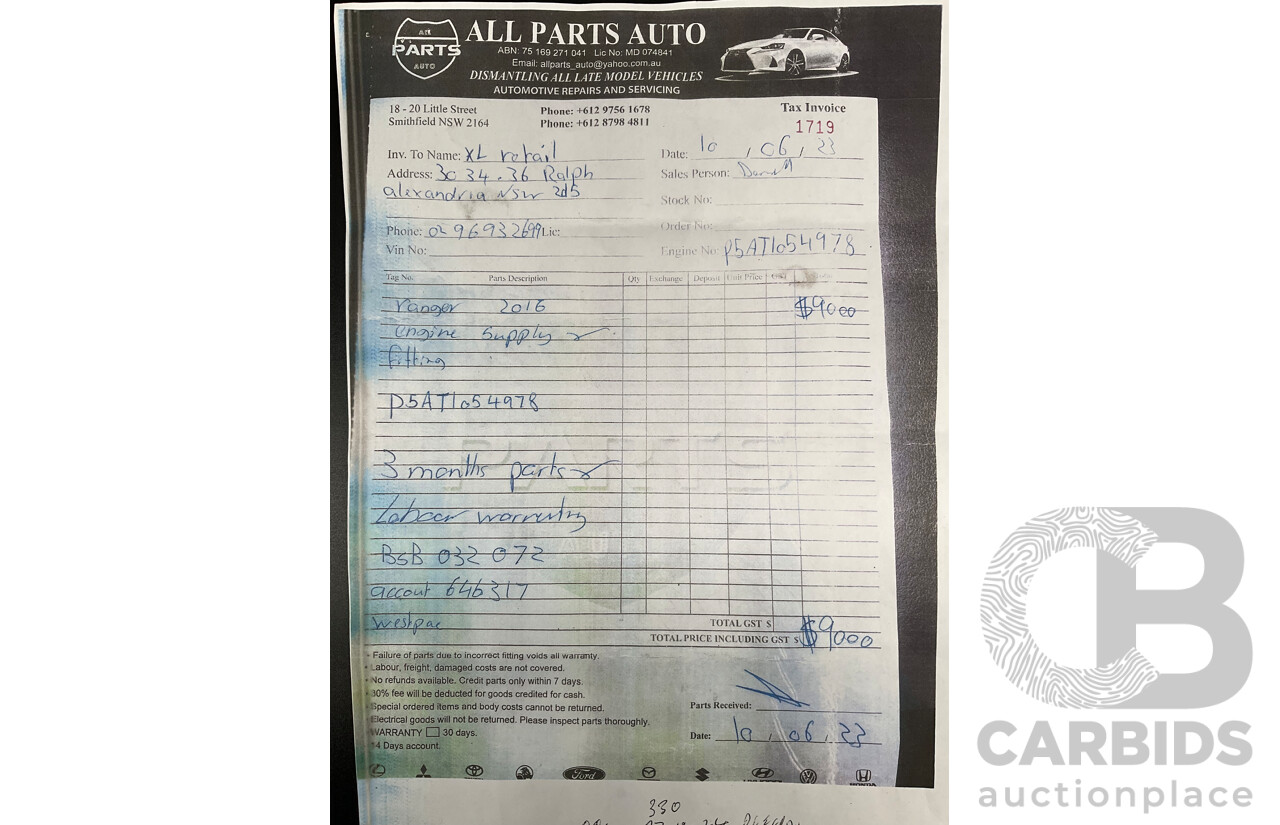 ALL
PARTS
AUTO
ALL PARTS AUTO
ABN: 75 169 271 041 Lic No: MD 074841
Email: allparts_auto@yahoo.com.au
DISMANTLING ALL LATE MODEL VEHICLES
AUTOMOTIVE REPAIRS AND SERVICING
18 - 20 Little Street
Smithfield NSW 2164
Phone: +612 9756 1678
Phone: +612 8798 4811
Tax Invoice
1719
Inv. To Name: XL retail
Date: 10 / 06 / 23
Address: 30 34.36 Ralph
Sales Person:
alexandria NSW
Stock No:
Order No:
Phone: 02 96932699 Lic:
Vin No:
Engine No: P5AT1054978
Tag No. Parts Description Qty Exchange Deposit Unit Price GST
ranger 2016 $9000
engine Supply ✓
fitting
P5AT1054978
3 months parts ✓
Labour warrenty
BSB 032 072
accout 646317
westpac
TOTAL GST $
TOTAL PRICE INCLUDING GST $ $9000
• Failure of parts due to incorrect fitting voids all warranty.
• Labour, freight, damaged costs are not covered.
• No refunds available. Credit parts only within 7 days.
• 30% fee will be deducted for goods credited for cash.
• Special ordered items and body costs cannot be returned.
• Electrical goods will not be returned. Please inspect parts thoroughly.
• WARRANTY 30 days.
14 Days account.
Parts Received:
Date: 10 / 06 / 23
Ford
HONDA
330
CARBIDS
auctionplace